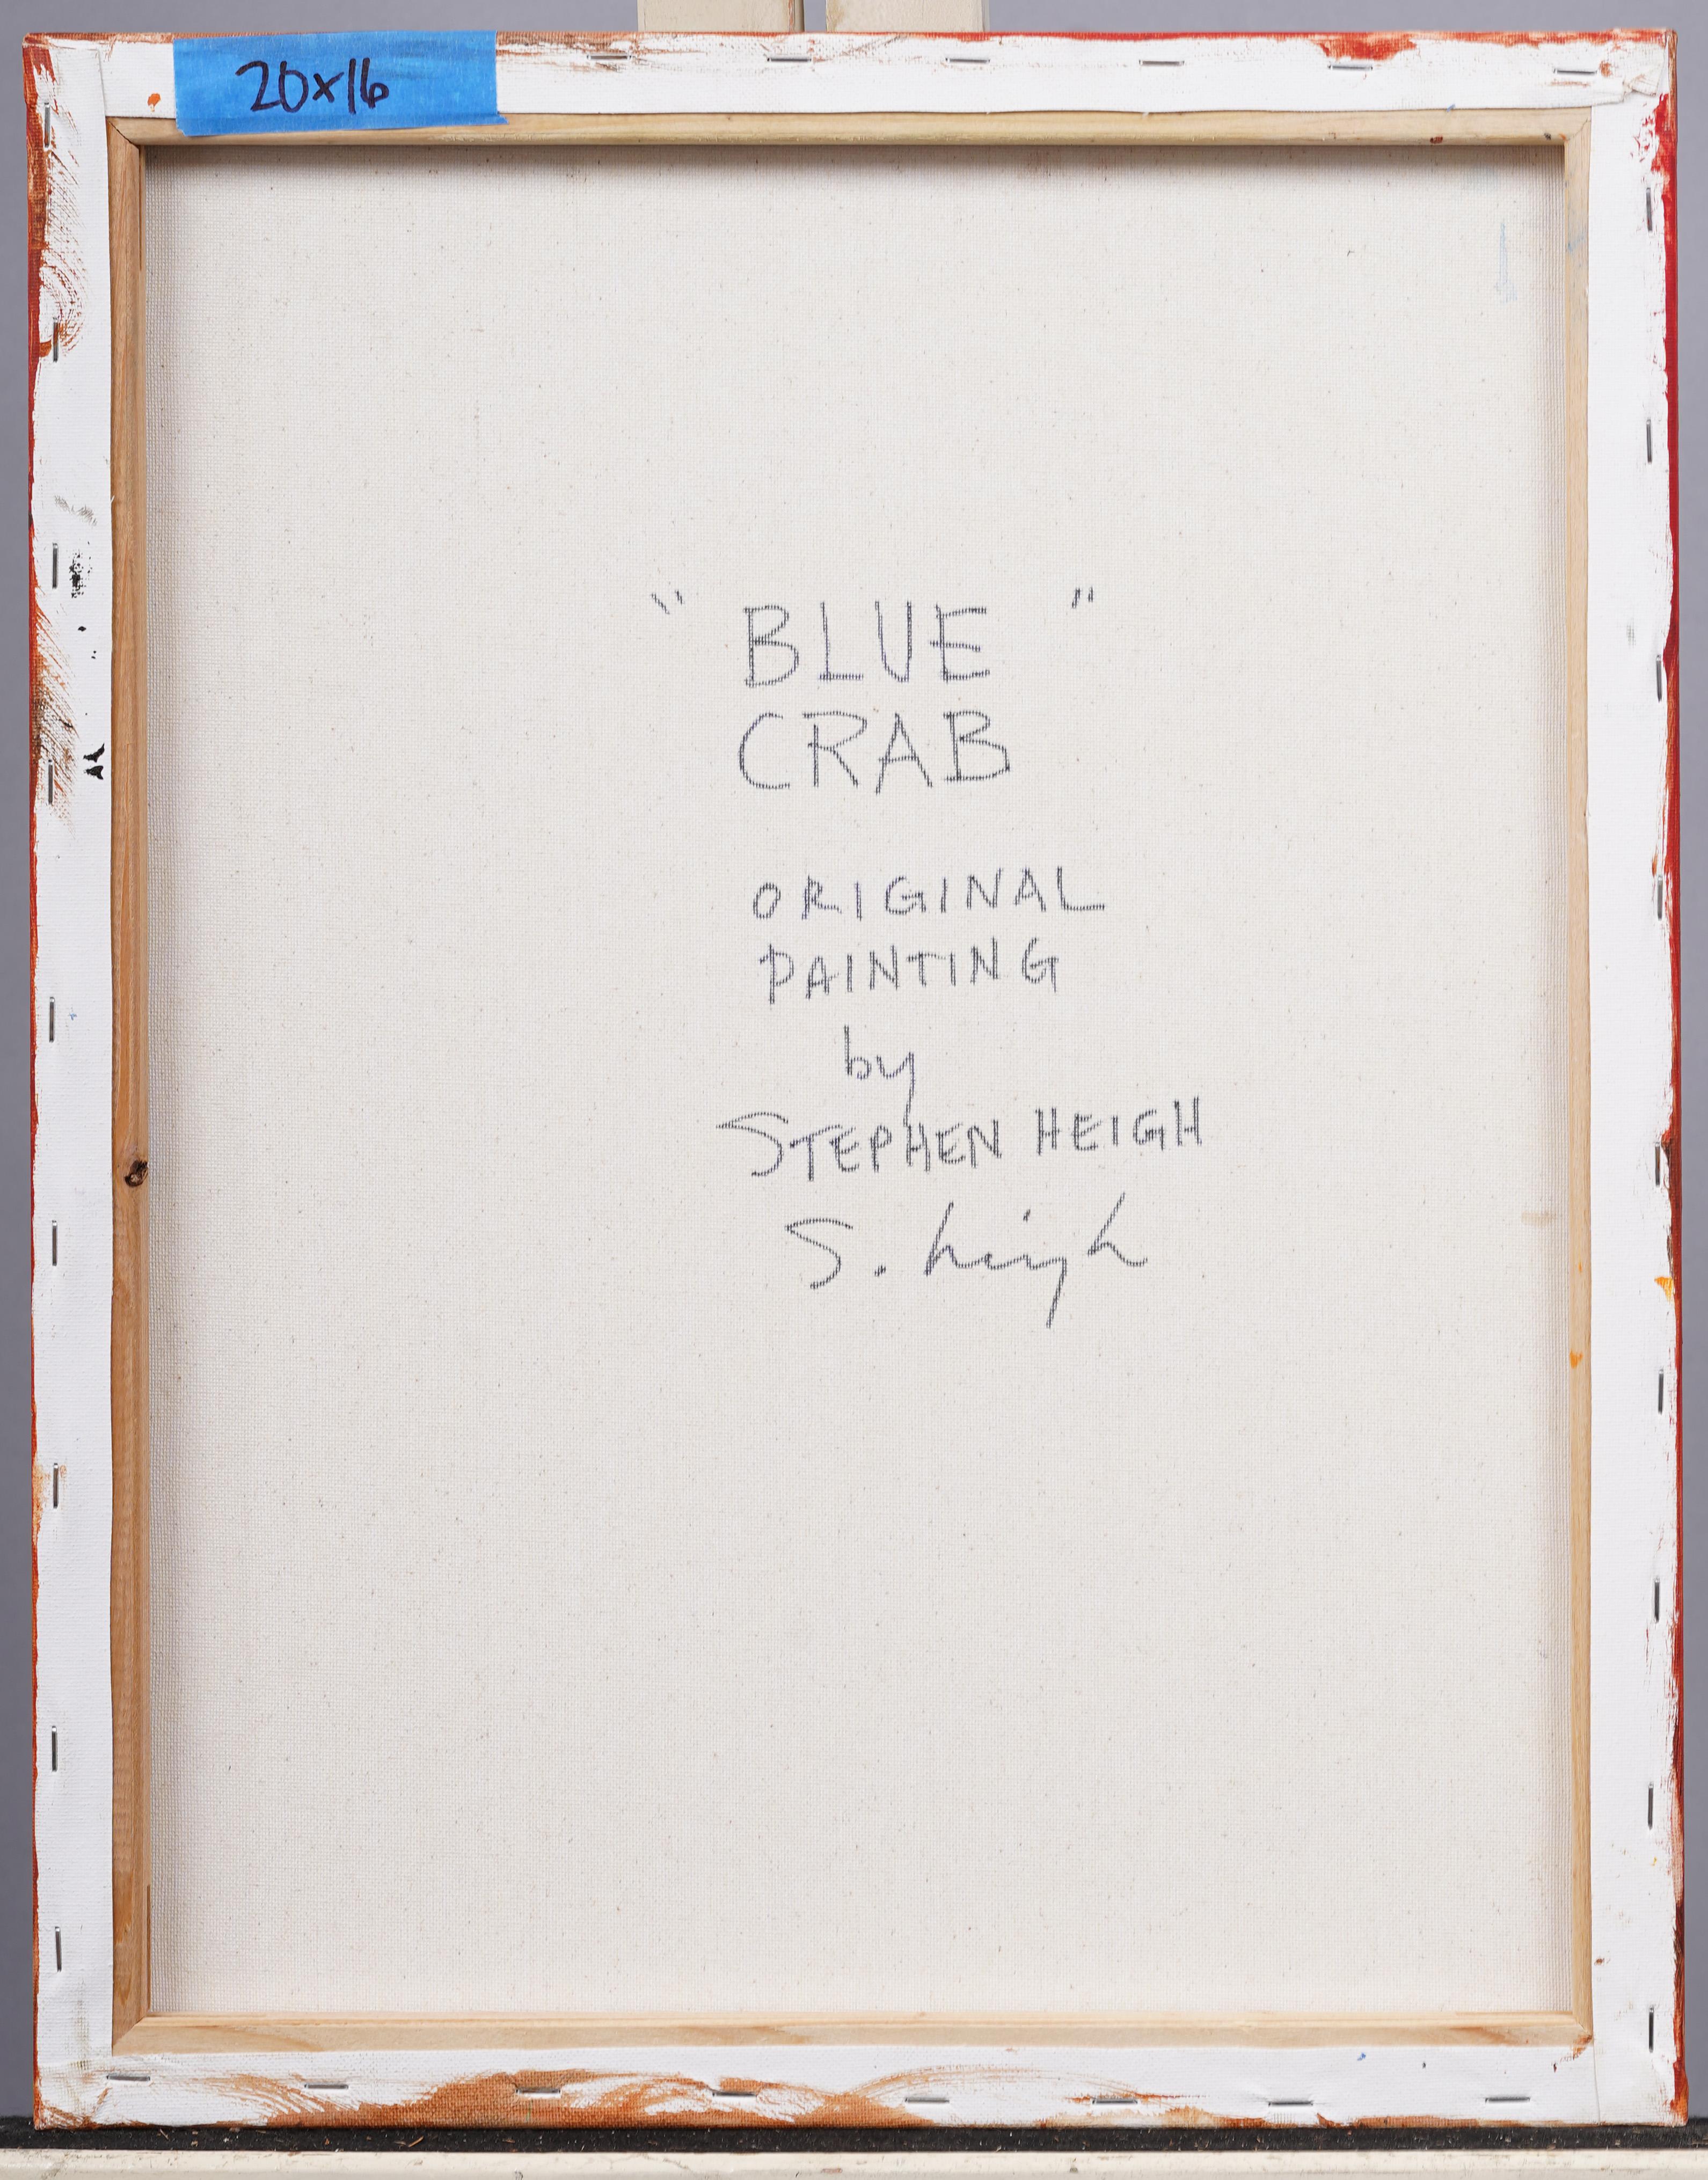 20x16
"BLUE"
CRAB
ORIGINAL
PAINTING
by
STEPHEN HEIGH
S. Heigh